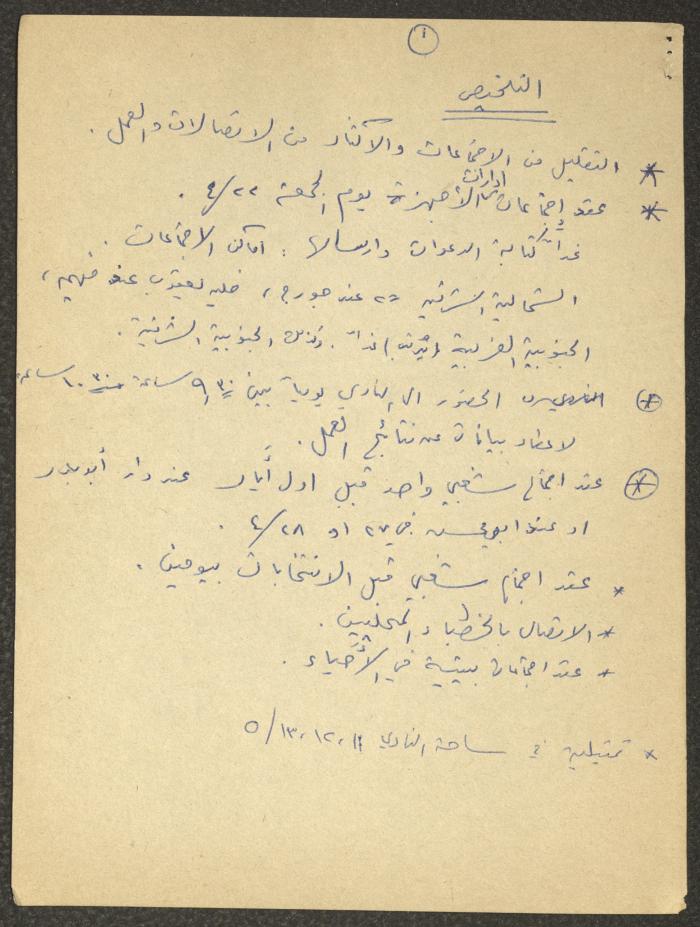 ١
التلخيص
* التقليل من الاجتماعات والاكثار من الاتصالات والعمل .
* عقد إجتماعات ادارات الأجهزة يوم الجمعة ٤/٢٢ .
غداً كتابة الدعوات وارسالها : اماكن الاجتماعات .
الشمالية الشرقية عند جورج ، عند فهيم ،
الجنوبية الغربية غداً . وكذلك الجنوبية الشرقية .
* الحضور الى النادي يومياً بين ٩٫٣٠ ساعة ١٠٫٣٠ ساعة
لاعطاء بيانات عن نتائج العمل .
* عقد اجتماع شعبي واحد قبل اول أيار عند دار أبو بدر
او عند ابو محسن في ٢٧ او ٤/٢٨ .
* عقد اجتماع شعبي قبل الانتخابات بيومين .
* الاتصال بالخطباء المحليين .
* عقد اجتماعات بيتية في الأحياء .
* تمثيلية في ساحة النادي ١١، ١٢، ٥/١٣